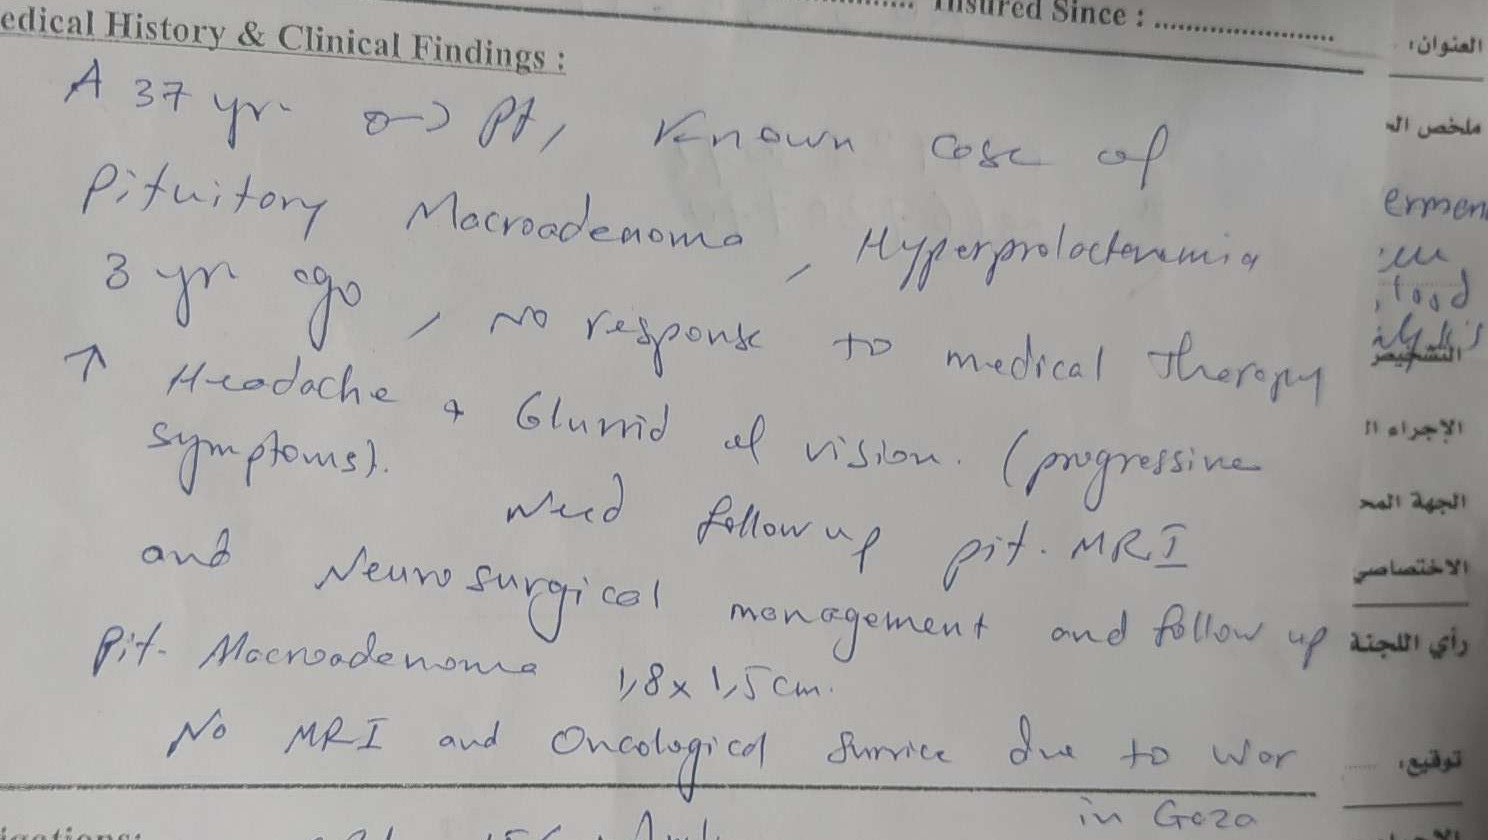 Insured Since : ........................
edical History & Clinical Findings :
A 37 yr. ♂ Pt, Known case of
Pituitory Macroadenoma, Hyperprolactenemia
3 yr ago, No response to medical therapy
↑ Headache + Blurrid of vision. (progressive
symptoms). Need follow up pit. MRI
and Neurosurgical management and follow up
Pit. Macroadenoma 1,8 x 1,5 cm.
No MRI and Oncological Survice due to War
in Gaza
العنوان:
ملخص الـ
ermen
food
التشخيص
الإجراء ا
الجهة المح
الاختصاصي
رأي اللجنة
توقيع: